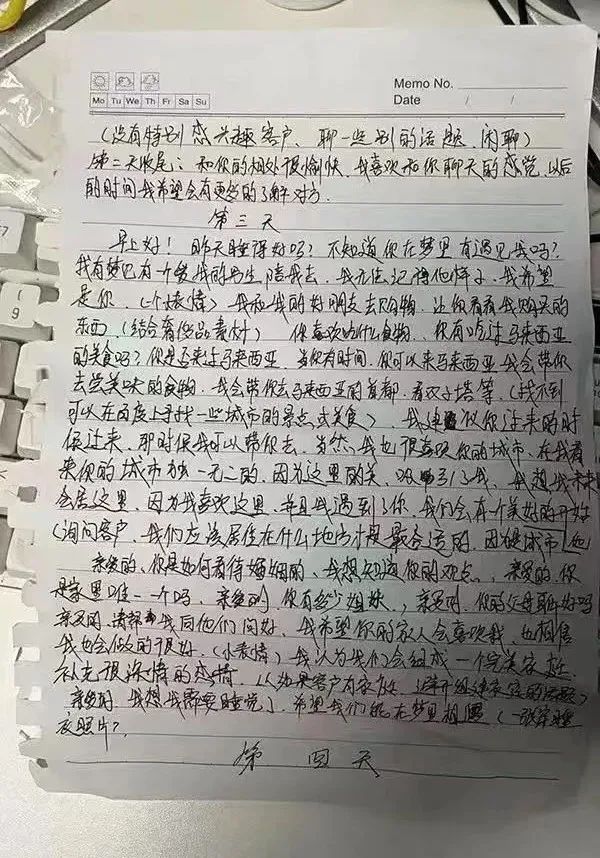 Memo No.
Mo Tu We Th Fr Sa Su
Date / /
(没有特别感兴趣客户、聊一些别的话题、闲聊)
第二天收尾：和你的相处很愉快、我喜欢和你聊天的感觉、以后
的时间我希望会有更多的了解对方.
第三天
早上好！昨天睡得好吗？不知道你在梦里有遇见我吗？
我有梦见有一个爱我的男生陪我去、我无法记得他样子、我希望
是你、(个表情) 我和我的好朋友去购物、让你看看我购买的
东西、(结合奢侈品素材) 你喜欢吃什么食物、你有吃过马来西亚
的美食吗？你是否来过马来西亚、当你有时间、你可以来马来西亚我会带你
去尝美味的食物、我会带你去马来西亚的首都、看双子塔等、(找不到
可以在百度上寻找一些城市的景点或美食)、我建议你过来的时
候过来、那时候我可以带你去、当然我也很喜欢你的城市、在我看
来你的城市独一无二的、因为这里的美、吸引了我、我想我未来
会居这里、因为我喜欢这里、并且我遇到了你、我们会有个美好的开始
(询问客户、我们应该居住在什么地方才是最合适的、因为城市
亲爱的、你是如何看待婚姻的、我想知道你的观点、亲爱的、你
是家里唯一个吗、亲爱的、你有多少姐妹、亲爱的、你的父母都好吗
亲爱的、请帮我同他们问好、我希望你的家人会喜欢我、也相信
我也会做的很好、(小表情) 我认为我们会组成一个完美家庭
补充很深情的感情、如果客户有家庭、避开组建家庭的话题)
亲爱的、我想我需要睡觉了、希望我们能在梦里相遇 (一张穿睡
衣照片？
第四天